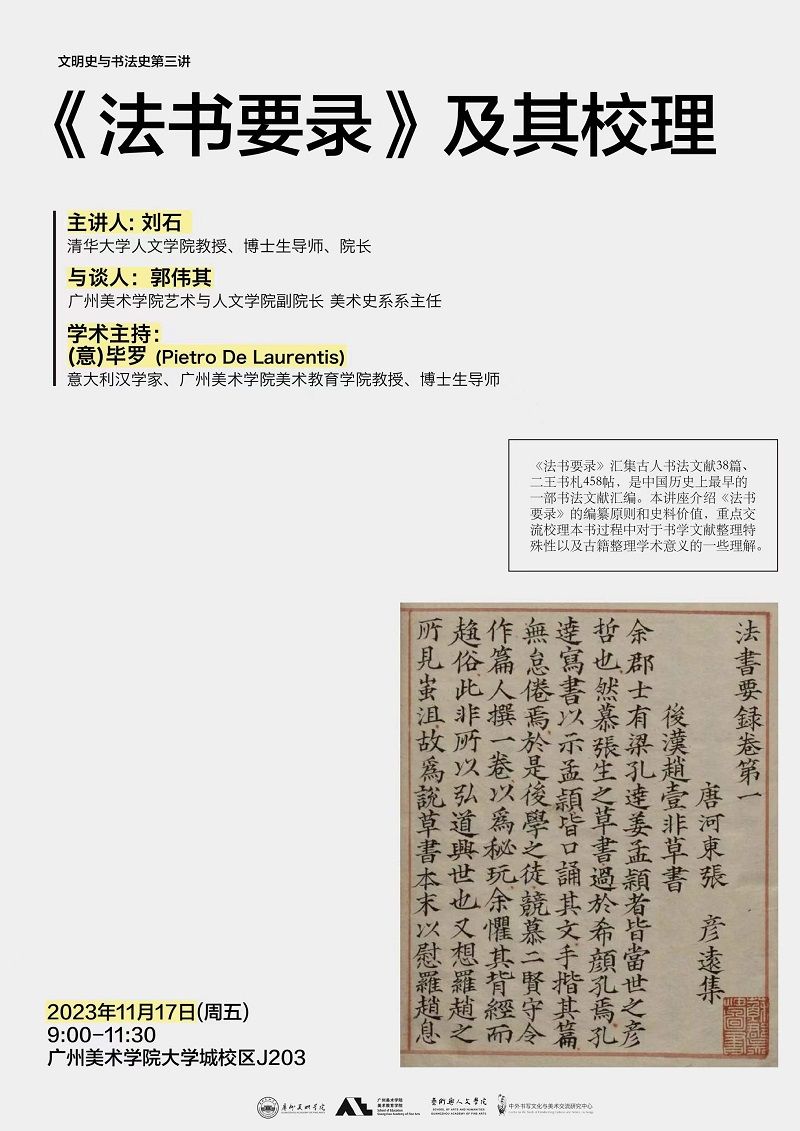 文明史与书法史第三讲
《法书要录》及其校理
主讲人: 刘石
清华大学人文学院教授、博士生导师、院长
与谈人：郭伟其
广州美术学院艺术与人文学院副院长 美术史系系主任
学术主持：
(意)毕罗 (Pietro De Laurentis)
意大利汉学家、广州美术学院美术教育学院教授、博士生导师
《法书要录》汇集古人书法文献38篇、
二王书札458帖，是中国历史上最早的
一部书法文献汇编。本讲座介绍《法书
要录》的编纂原则和史料价值，重点交
流校理本书过程中对于书学文献整理特
殊性以及古籍整理学术意义的一些理解。
法書要錄卷第一
唐河東張 彦遠集
後漢趙壹非草書
余郡士有梁孔達姜孟頴者皆當世之彦
哲也然慕張生之草書過於希顔孔焉孔
達寫書以示孟頴皆口誦其文手揩其篇
無怠倦焉於是後學之徒競慕二賢守令
作篇人撰一卷以爲秘玩余懼其背經而
趍俗此非所以弘道興世也又想羅趙之
所見蚩沮故爲說草書本末以慰羅趙息
2023年11月17日(周五)
9:00-11:30
广州美术学院大学城校区J203
广州美术学院
广州美术学院
美术教育学院
School of Education
Guangzhou Academy of Fine Arts
藝術與人文學院
SCHOOL OF ARTS AND HUMANITIES
GUANGZHOU ACADEMY OF FINE ARTS
中外书写文化与美术交流研究中心